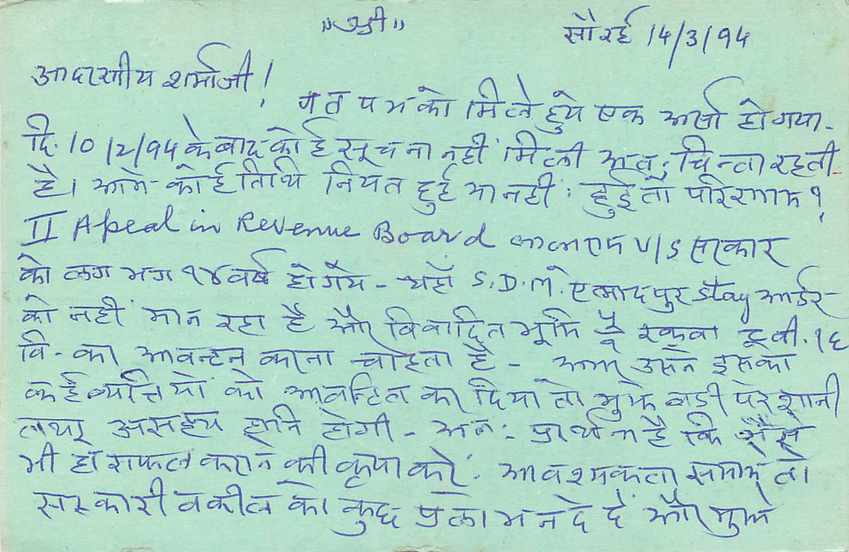 "श्री"
सौरई 14/3/94
आदरणीय शर्माजी!
गत पत्र को मिले हुये एक अर्सा हो गया-
दि. 10/2/94 के बाद कोई सूचना नहीं मिली अतः चिन्ता रहती
है। आगे कोई तिथि नियत हुई या नहीं: हुई तो परिणाम?
II Apeal in Revenue Board V/S सरकार
को लगभग १४ वर्ष हो गये - यहाँ S.D.M. एत्मादपुर stay आर्डर
को नहीं मान रहा है और विवादित भूमि रकवा
वि- का आवन्टन करना चाहता है - अगर उसने इसका
कई व्यक्तियों को आवन्टित कर दिया तो मुझे बड़ी परेशानी
तथा असहय हानि होगी - अतः प्रार्थना है कि जैसे
भी हो सफल कराने की कृपा करें. आवश्यकता समझें तो
सरकारी वकील को कुछ प्रलोभन दे दें और मुझे